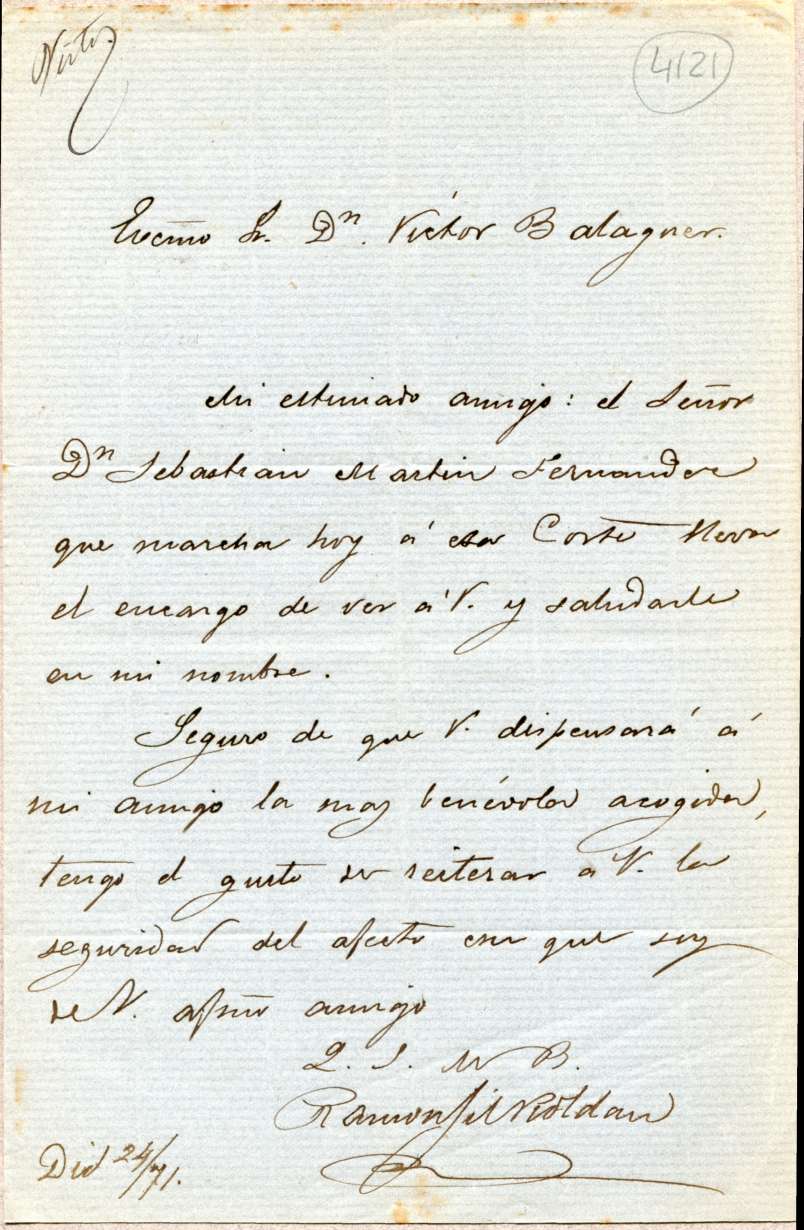 Visto
4121
Excmo Sr. Dn. Víctor Balaguer.
Mi estimado amigo: el Señor
Dn Sebastian Martin Fernandez
que marcha hoy á esa Corte lleva
el encargo de ver á V. y saludarle
en mi nombre.
Seguro de que V. dispensará á
mi amigo la mas benévola acogida,
tengo el gusto de reiterar a V. la
seguridad del afecto con que soy
de V. afsmo amigo
Q. S. M. B.
Ramon Gil Roldan
24/71.